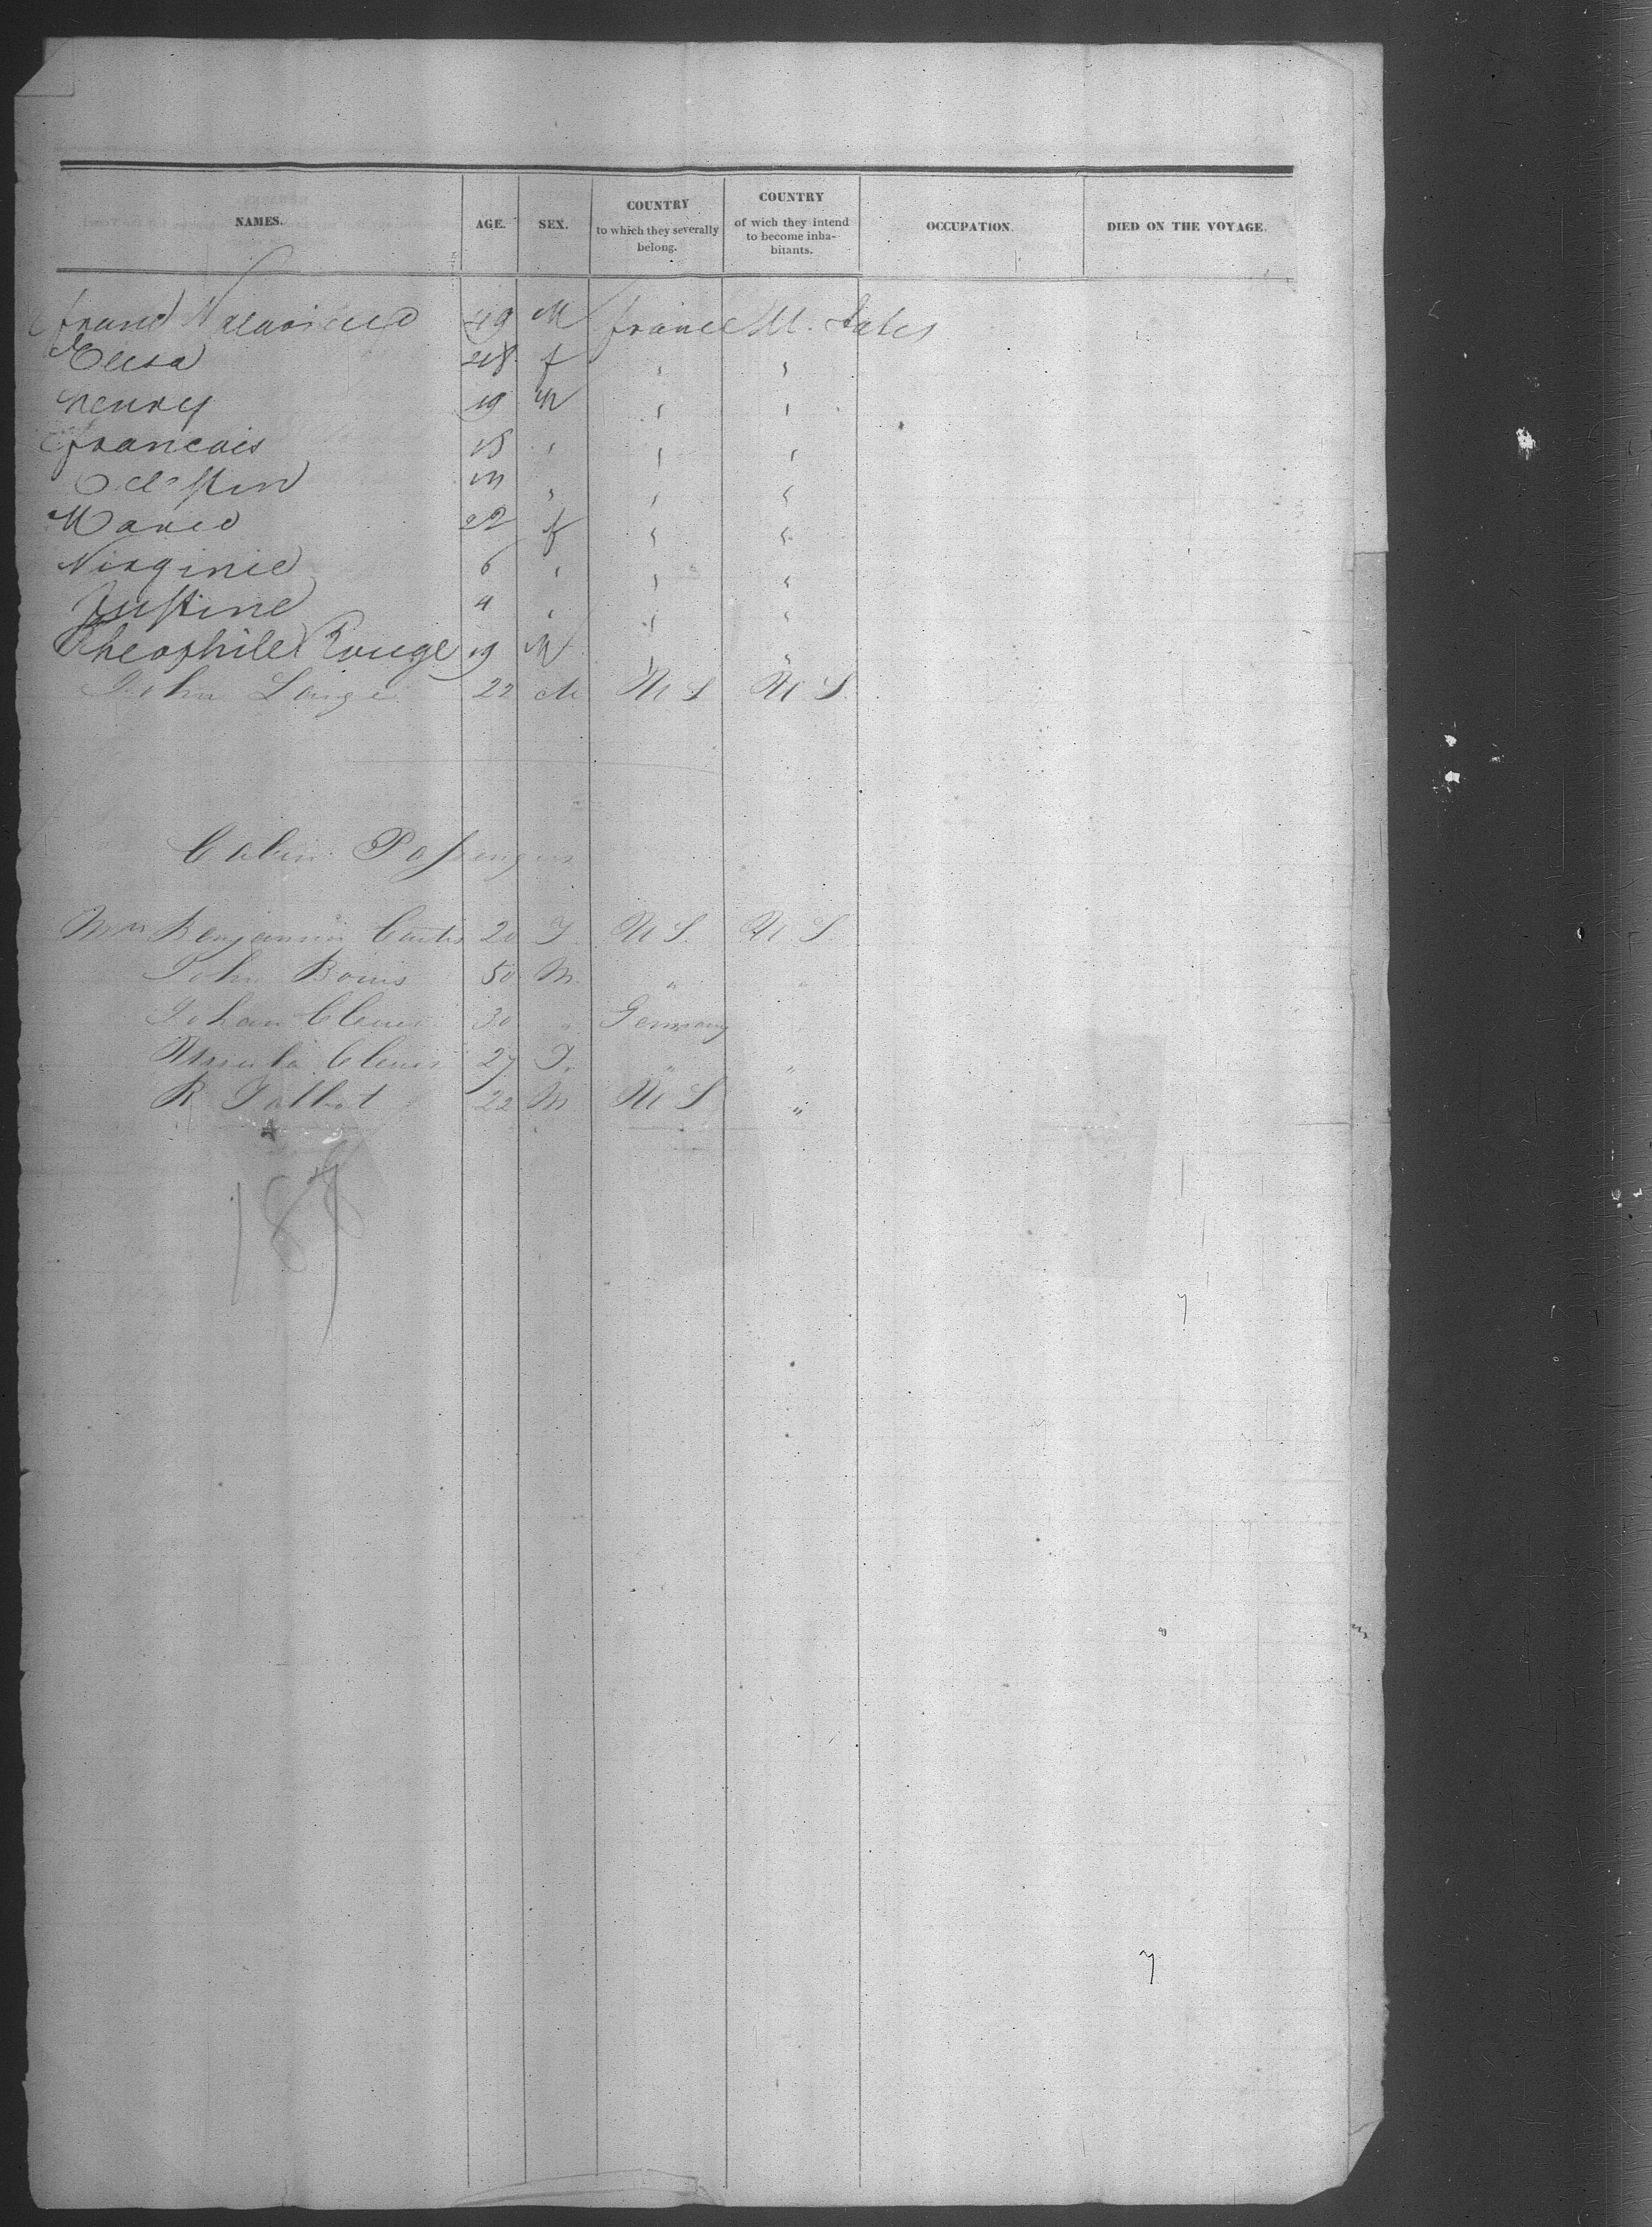 NAMES. AGE. SEX. COUNTRY to which they severally belong. COUNTRY of wich they intend to become inhabitants. OCCUPATION. DIED ON THE VOYAGE.
49 M france U. States
Elisa 48 f " "
henry 19 M " "
francois 18 " " "
Celestin " " "
Marie 22 f " "
Virginie 6 " " "
Justine 4 " " "
Theophile Rouge 19 M " "
John Lange 22 M U S U S.
Cabin Passengers
Mrs Benjamin Curtis 20 F. U S. U S.
John 50 M. " "
Johan 30 " Germany
Ursula 27 F. " "
R Talbot 22 M U S "
187